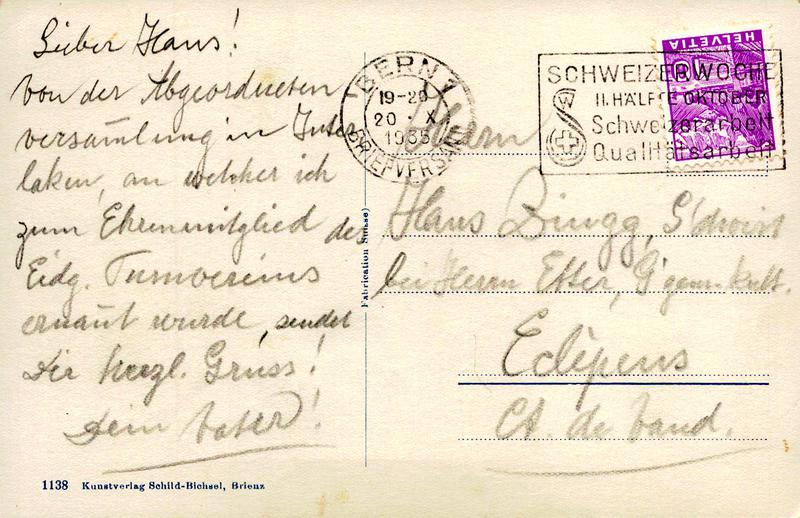 Lieber Hans!
Von der Abgeordneten
versam̄lung in Inter
laken, an welcher ich
zum Ehrenmitglied des
Eidg. Turnvereins
ernan̄t wurde, sendet
Dir herzl. Gruss!
Dein Vater!
1138 Kunstverlag Schild-Bichsel, Brienz
Fabrication Suisse)
BERN 1
19-20
20 X
1935
BRIEFVERSAND
SCHWEIZERWOCHE
II. HÄLFTE OKTOBER
Schweizerarbeit
Qualitätsarbeit
HELVETIA
10
Herrn
Hans Bingg,
bei Herrn Etter,
Eclépens
Ct. de Vaud.